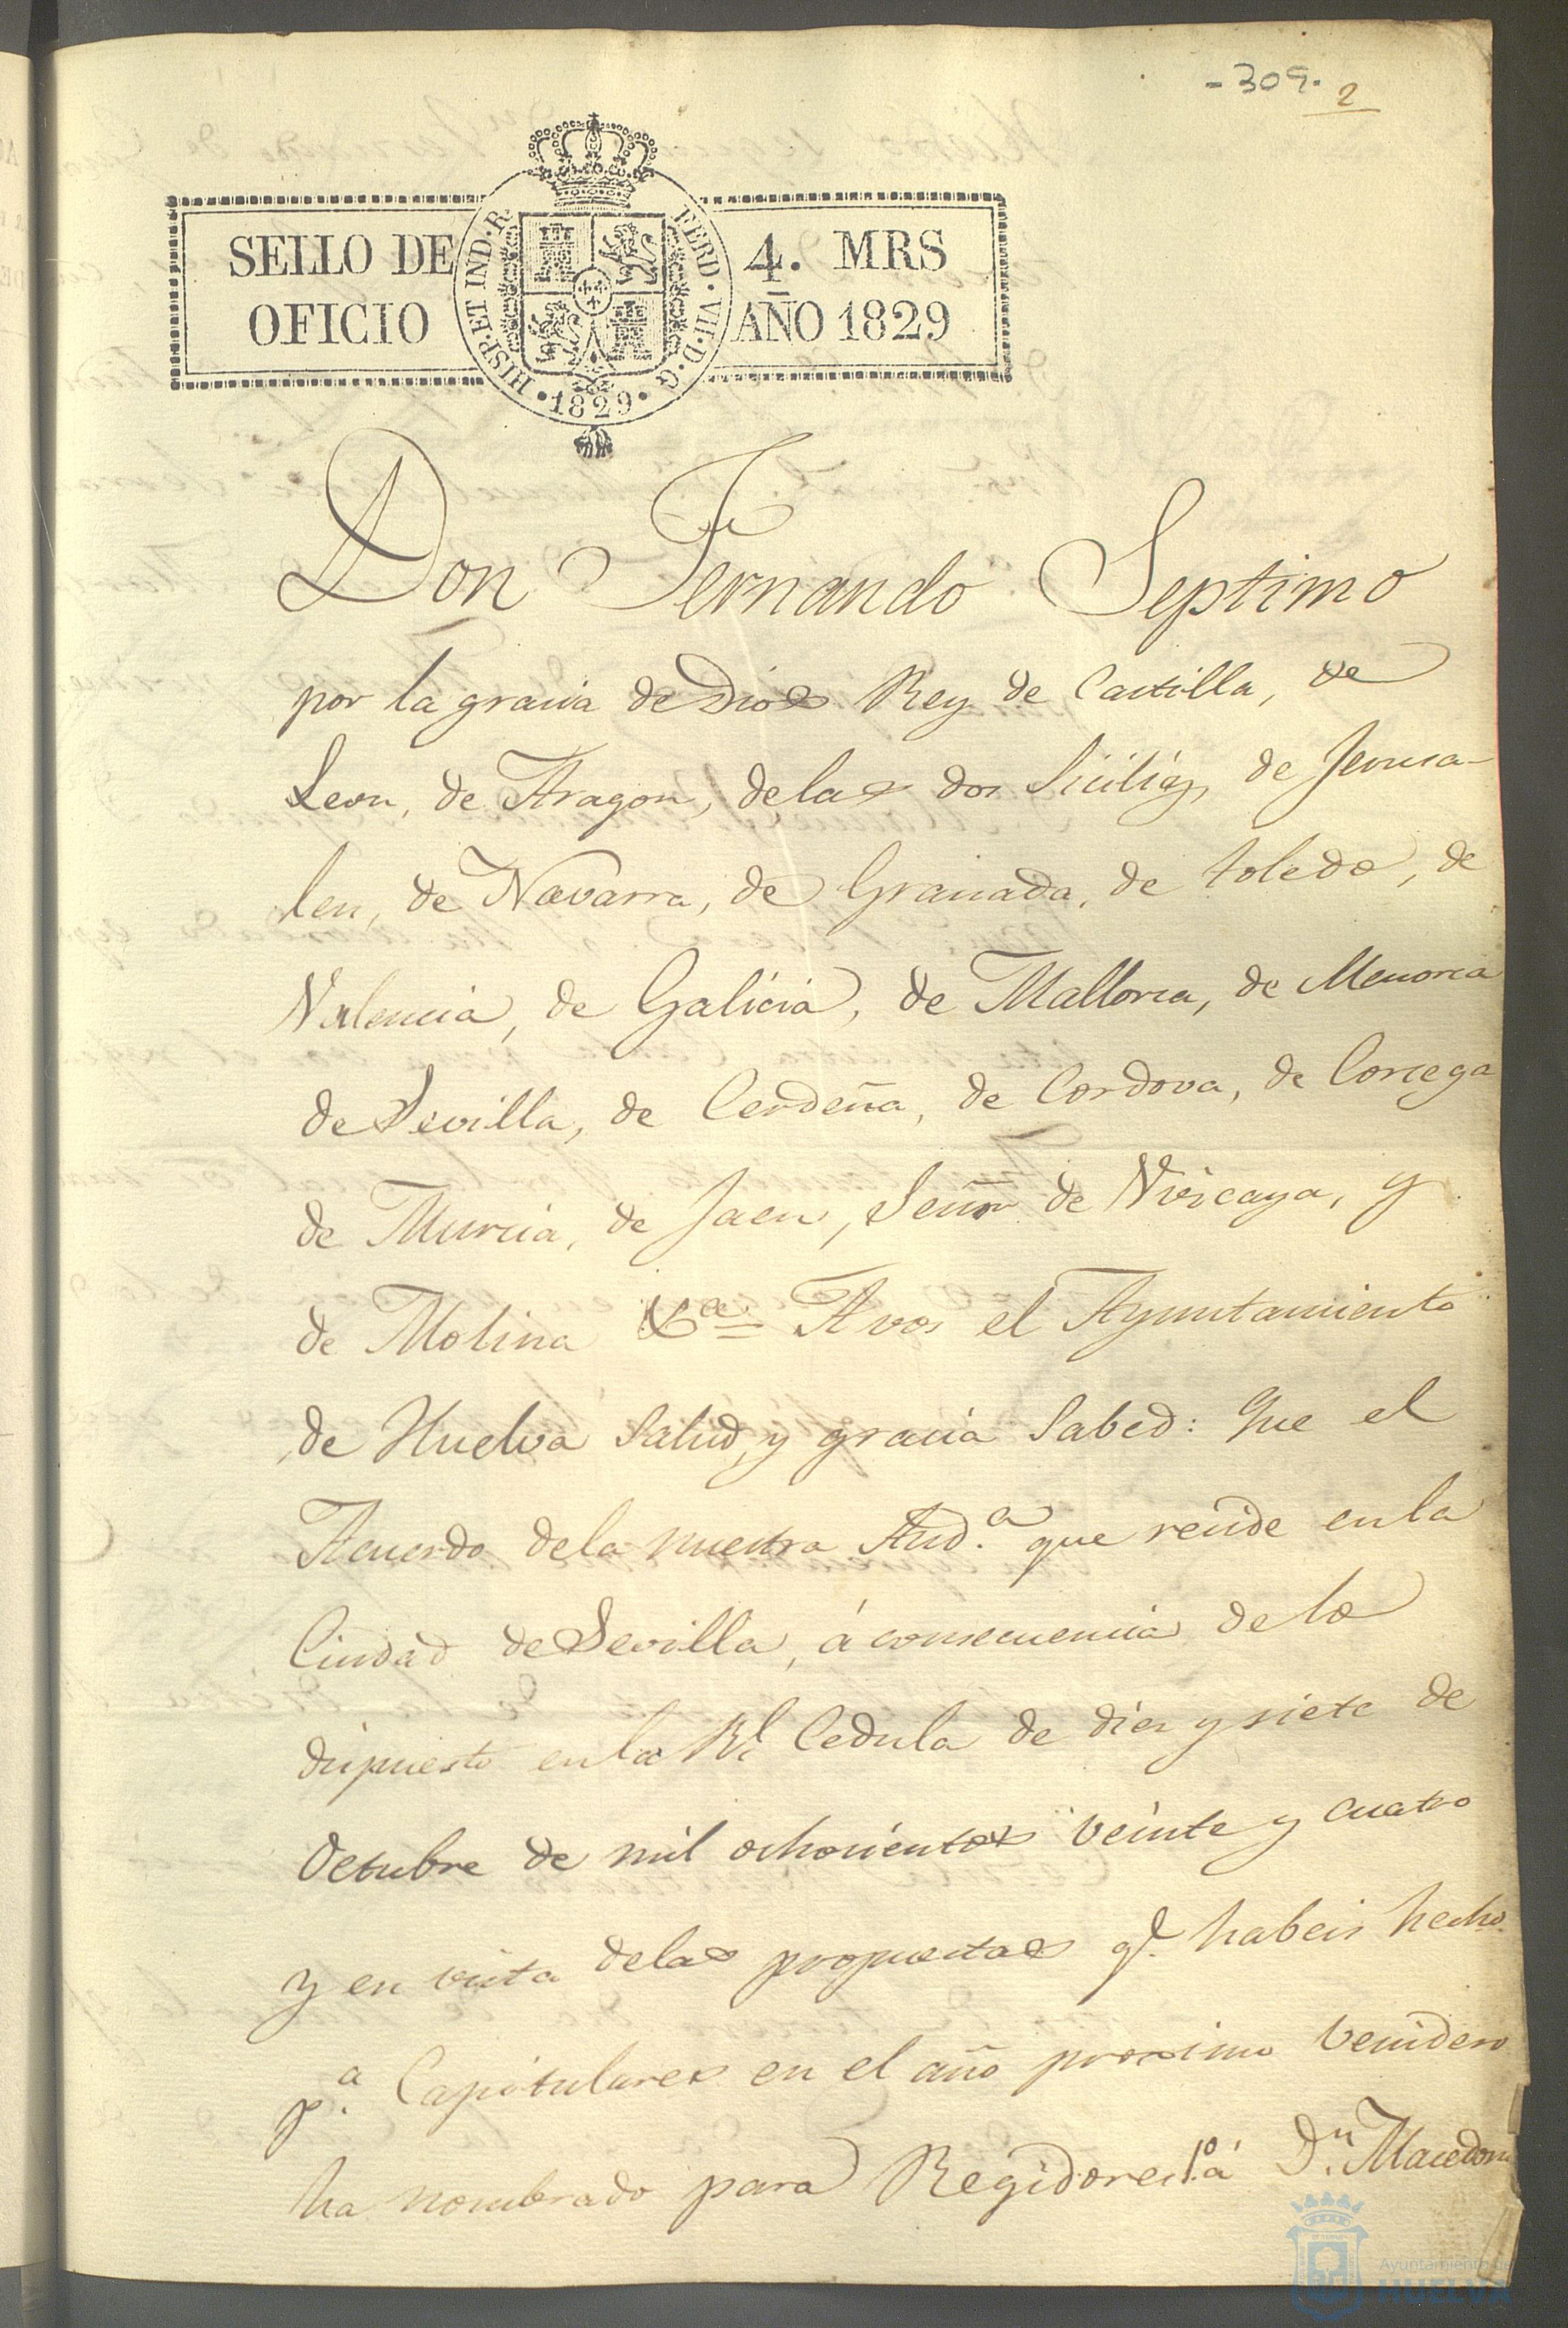 -309.
2
SELLO DE 4. MRS
OFICIO AÑO 1829
HISP·ET IND·R· FERD·VII·D·G
·1829·
Don Fernando Septimo
por la gracia de Dios Rey de Castilla, de
Leon, de Aragon, delas dos Sicilias, de Jerusa-
len, de Navarra, de Granada, de toledo, de
Valencia, de Galicia, de Mallorca, de Menorca
de Sevilla, de Cerdeña, de Cordova, de Corcega
de Murcia, de Jaen, Señor de Vizcaya, y
de Molina &ca = A vos el Ayuntamiento
de Huelva Salud, y gracia Sabed: Que el
Acuerdo dela nuestra Aud.a que reside enla
Ciudad de Sevilla, á consecuencia de lo
dispuesto enla Rl Cedula de diez y siete de
Octubre de mil ochocientos veinte y cuatro
y en vista delas propuestas q.e habeis hecho
p.a Capitulares en el año proximo venidero
ha nombrado para Regidores 1.o á D.n Macedonio
Ayuntamiento de
HUELVA